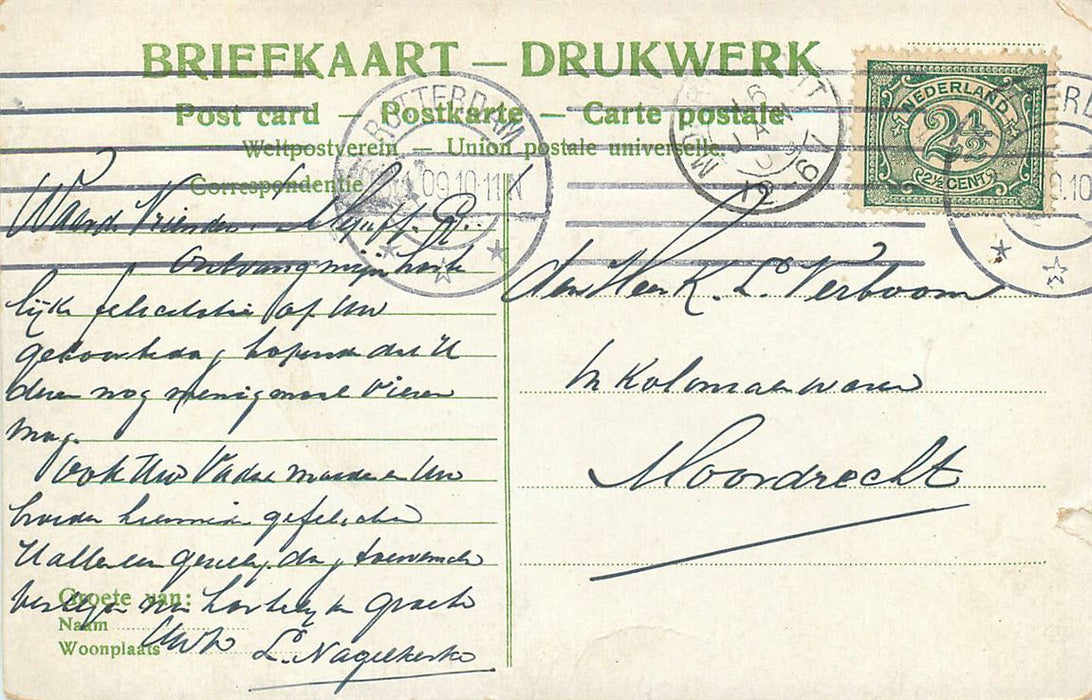 BRIEFKAART — DRUKWERK
Post card — Postkarte — Carte postale
Weltpostverein — Union postale universelle.
Correspondentie
ROTTERDAM
09.10-11 N
16
JAN
12
NEDERLAND
2½
2½ CENT
9.10
Waarde Vrienden
Ontvang mijn harte
lijke felicitatie op Uw
geboortedag, hopende dat U
deze nog menigmaal Vieren
mag.
Ook Uw Vader moeder en Uw
broeder hiermede gefeliciteerd
U allen een gezellige dag toewensch
hartelijke groete
Groete van:
Naam
Woonplaats
L. Nagelkerke
den Heer K. L. Verboom
In Kolomaalwaren
Moordrecht